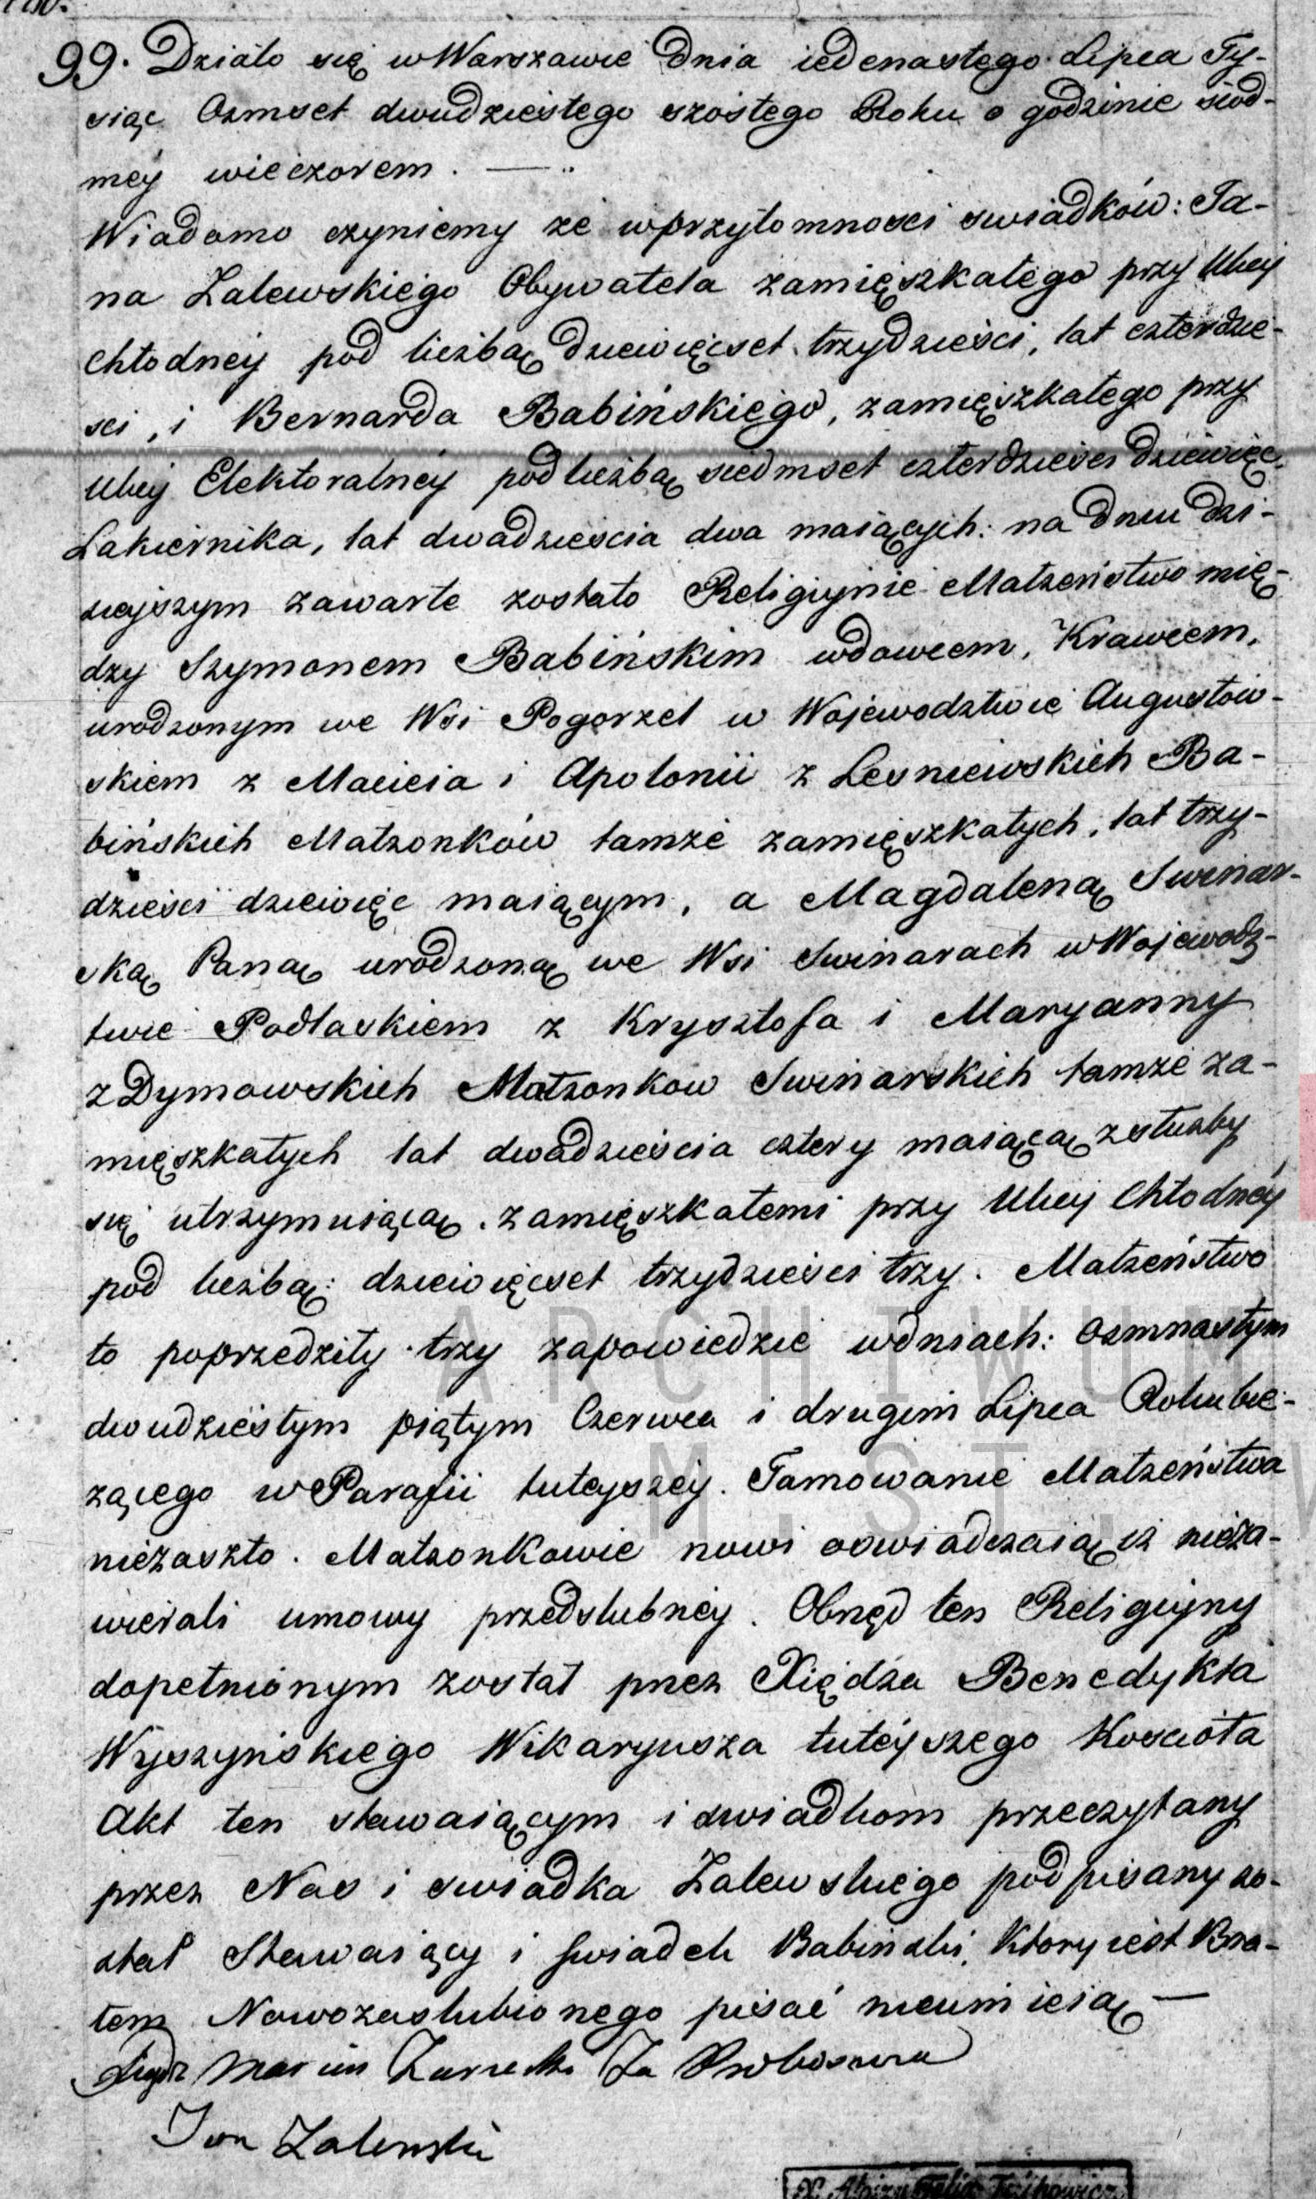 99. Działo się w Warszawie dnia iedenastego Lipca Ty-
siąc Osmset dwudziestego szóstego Roku o godzinie siód-
méy wieczorem.
Wiadomo czyniemy że w przytomności świadków: Ja-
na Zalewskiego Obywatela zamięszkałego przy Ulicy
Chłodnéy pod liczbą dziewięćset trzydzieści, lat czterdzie-
sci, i Bernarda Babińskiego, zamięszkałego przy
Ulicy Elektoralnéy pod liczbą siedmset czterdzieści dziewięć
Lakiernika, lat dwadzieścia dwa maiących: na dniu dzi-
sieyszym zawarte zostało Religiynie Małżeństwo mię-
dzy Szymonem Babińskim wdowcem, Krawcem,
urodzonym we Wsi Pogorzel w Województwie Augustow-
skiem z Macieia i Apolonii z Lesniewskich Ba-
bińskich Małżonków tamże zamięszkałych, lat trzy-
dzieści dziewięć maiącym, a Magdaleną Swinar-
ską Panną urodzoną we Wsi Swinarach w Wojewodz-
twie Podlaskiem z Krysztofa i Maryanny
z Dymowskich Małżonkow Swinarskich tamże za-
mięszkałych lat dwadzieścia cztery maiącą z służby
się utrzymuiącą, zamięszkałemi przy Ulicy Chłodnéy
pod liczbą: dziewięćset trzydzieści trzy. Małżeństwo
to poprzedziły trzy zapowiedzie w dniach: Osmnastym
dwudziestym piątym Czerwca i drugim Lipca Roku bie-
żącego w Parafii tuteyszéy. Tamowanie Małżeństwa
niezaszło. Małżonkowie nowi oświadczaią iż nieza-
wierali umowy przedślubnéy. Obrzęd ten Religiyny
dopełnionym został przez Xiędza Benedykta
Wyszyńskiego Wikaryusza tuteyszego Kościoła
Akt ten stawaiącym i świadkom przeczytany
przez Nas i świadka Zalewskiego podpisany zo-
stał Stawaiący i Swiadek Babinski, który iest Bra-
tem Nowozaslubionego pisać nieumieią —
Xiądz Marcin Za Proboszcza
Jan Zalewski
ARCHIWUM
M. ST. W